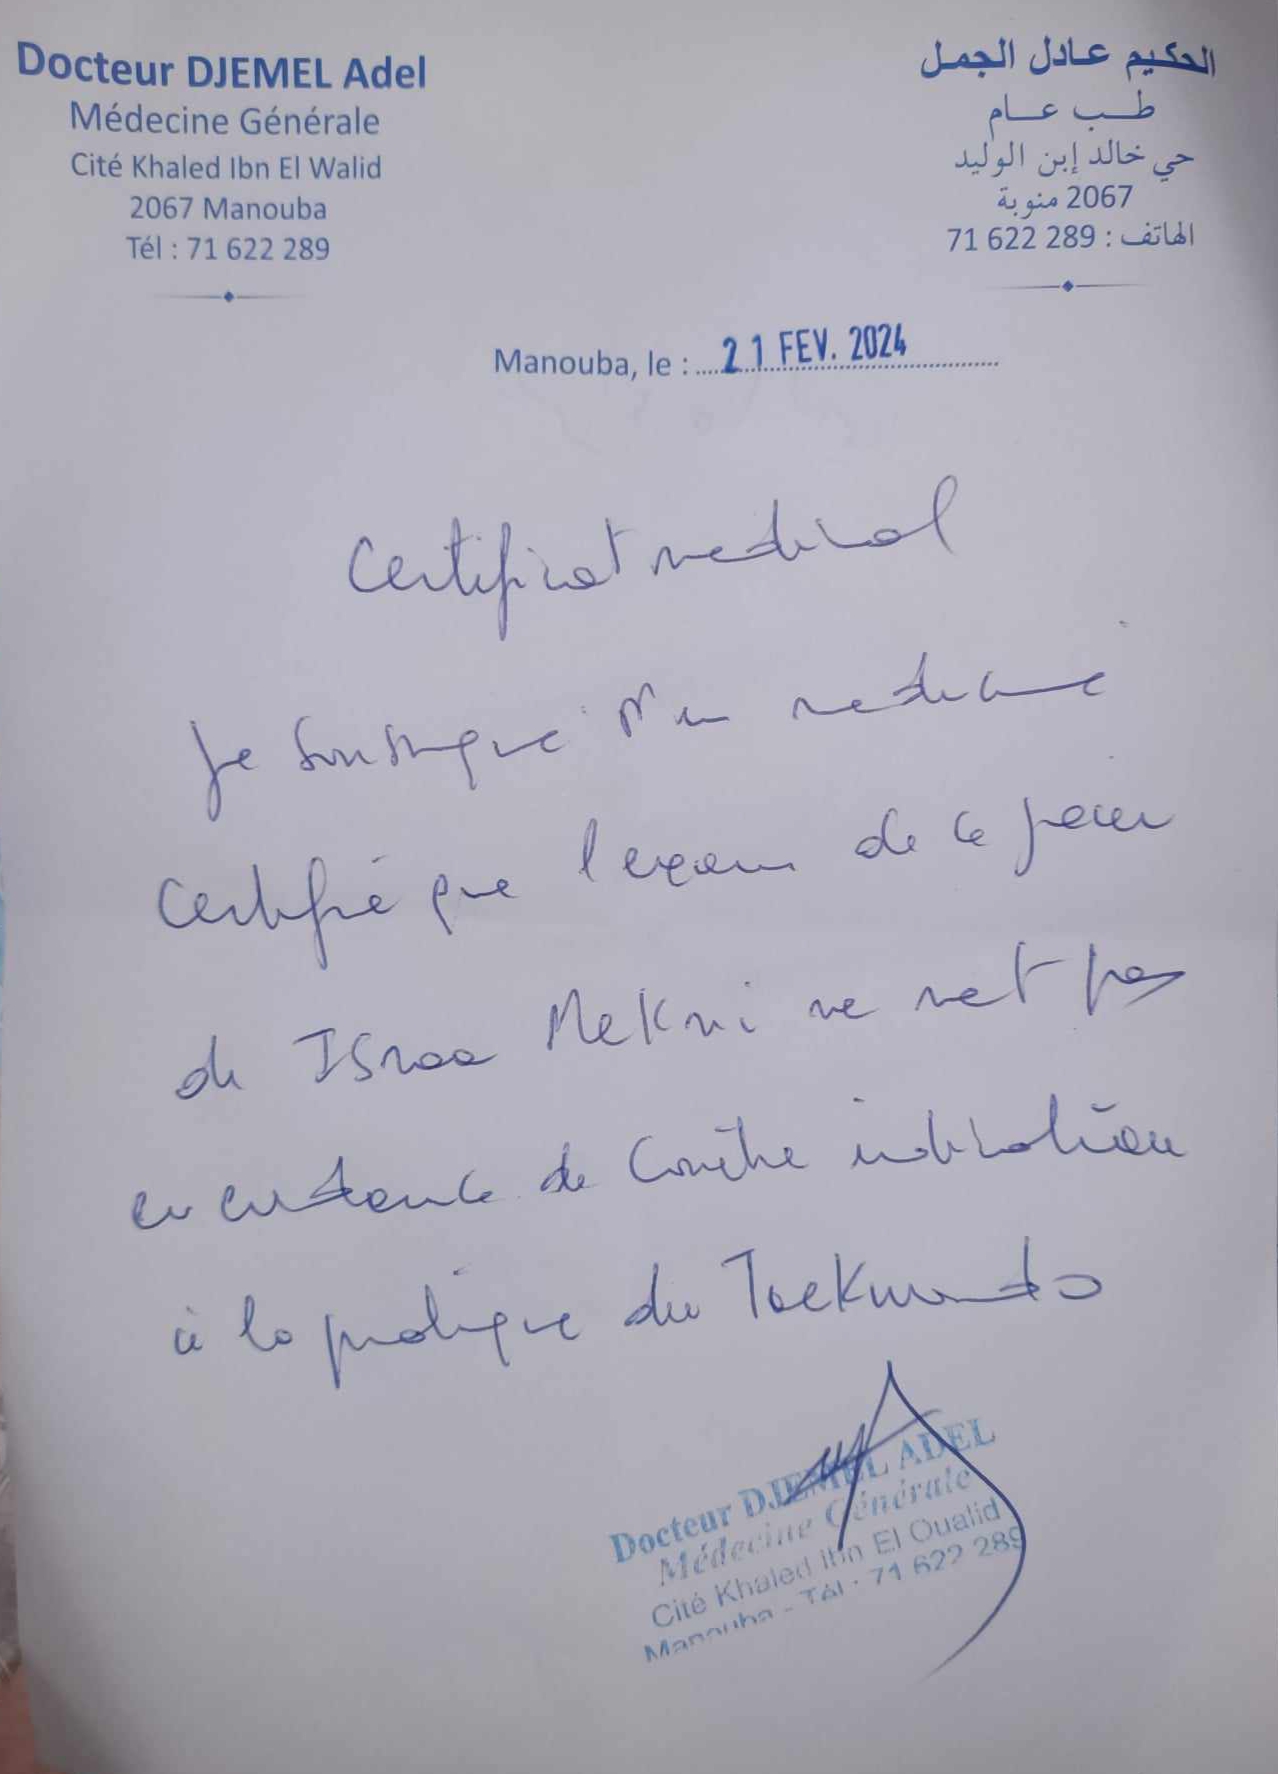 Docteur DJEMEL Adel
Médecine Générale
Cité Khaled Ibn El Walid
2067 Manouba
Tél : 71 622 289
الحكيم عادل الجمل
طب عام
حي خالد إبن الوليد
2067 منوبة
الهاتف : 289 622 71
Manouba, le : 21 FEV. 2024
Certificat medical
Je soussigné en medecine
Certifié que l'examen de ce jour
de Israa Mekni ne met pas
en evidence de Contre indication
à la pratique du Taekwondo
Docteur DJEMEL ADEL
Médecine Générale
Cité Khaled Ibn El Oualid
Manouba - Tél : 71 622 289